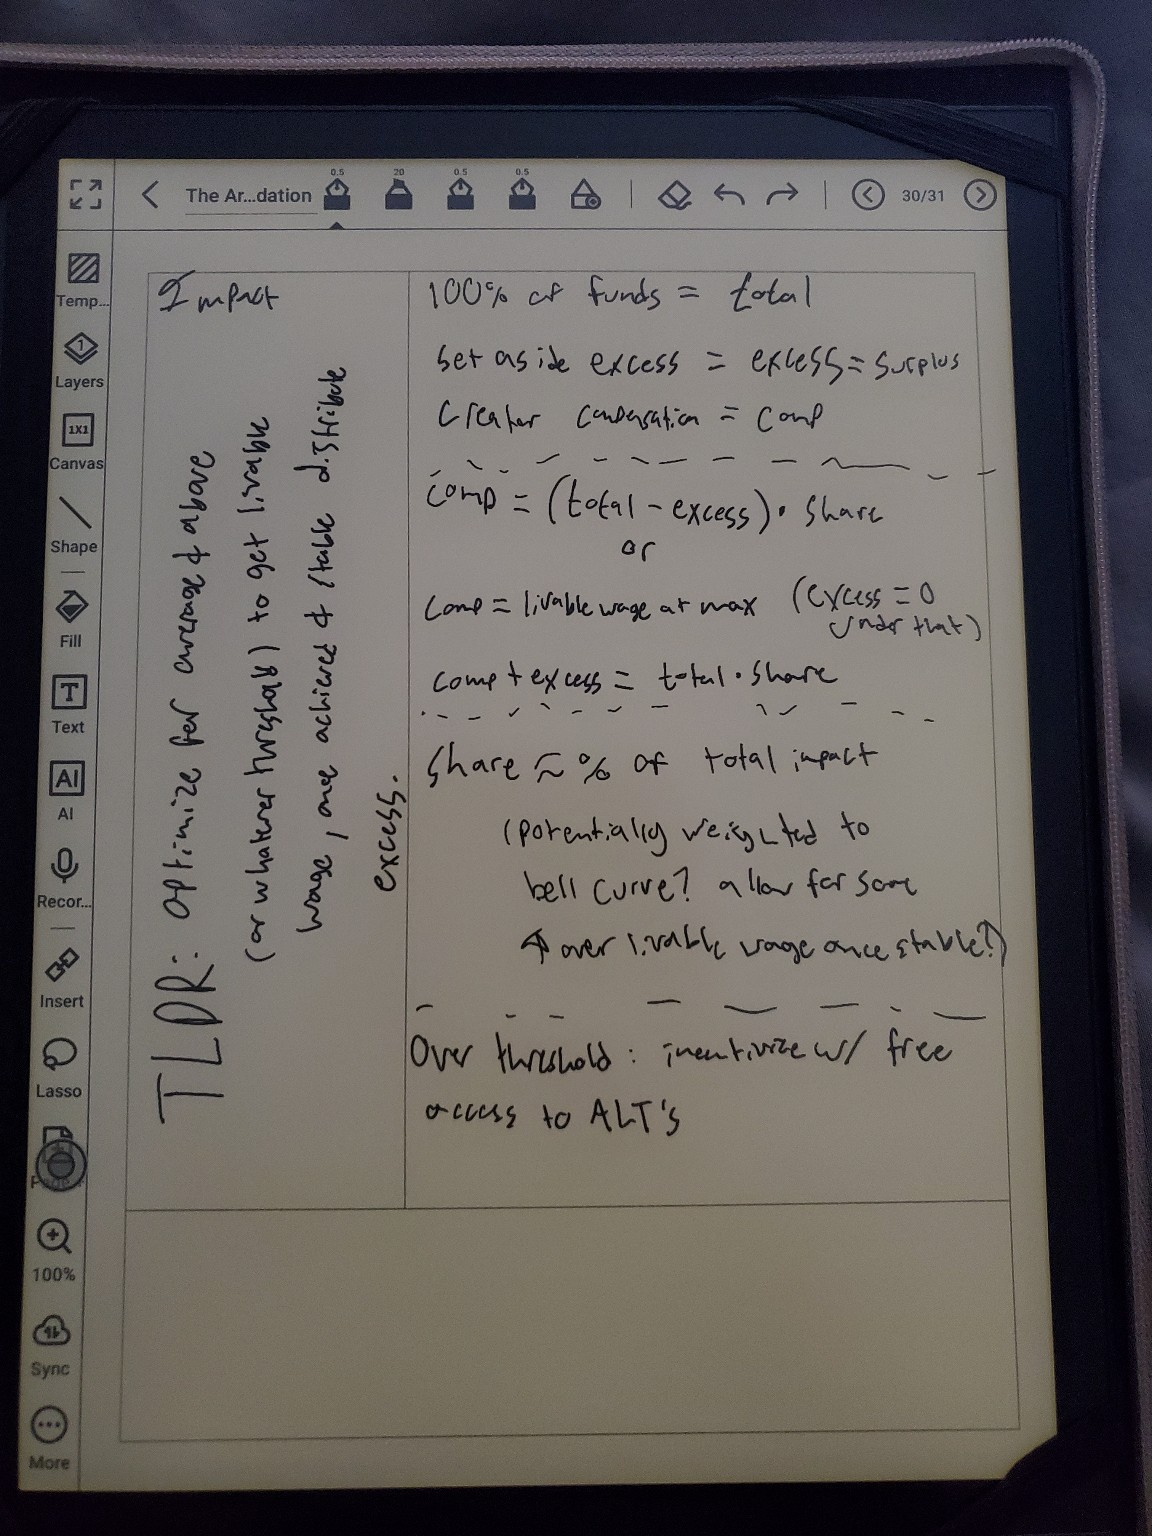 0.5
20
0.5
0.5
The Ar...dation
30/31
Temp...
Layers
1X1
Canvas
Shape
Fill
T
Text
AI
AI
Recor...
Insert
Lasso
100%
Sync
More
Impact
TLDR: optimize for average & above
(or whatever threshold) to get livable
wage, once achieved & stable distribute
excess.
100% of funds = total
Set aside excess = excess = surplus
Creator compensation = comp
comp = (total - excess) · share
or
comp = livable wage at max (excess = 0
under that)
comp + excess = total · share
Share ≈ % of total impact
(potentially weighted to
bell curve? allow for some
↑ over livable wage once stable?)
Over threshold: incentivize w/ free
access to ALT's